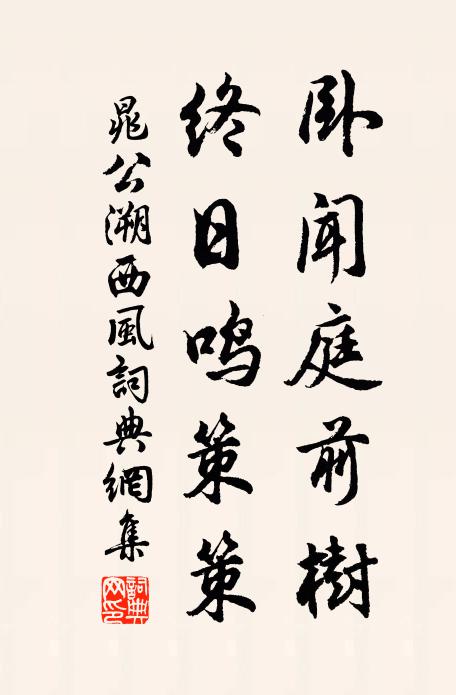 卧闻庭前樹
终日鸣策策
晁公溯西風詞典網集
詞典网印